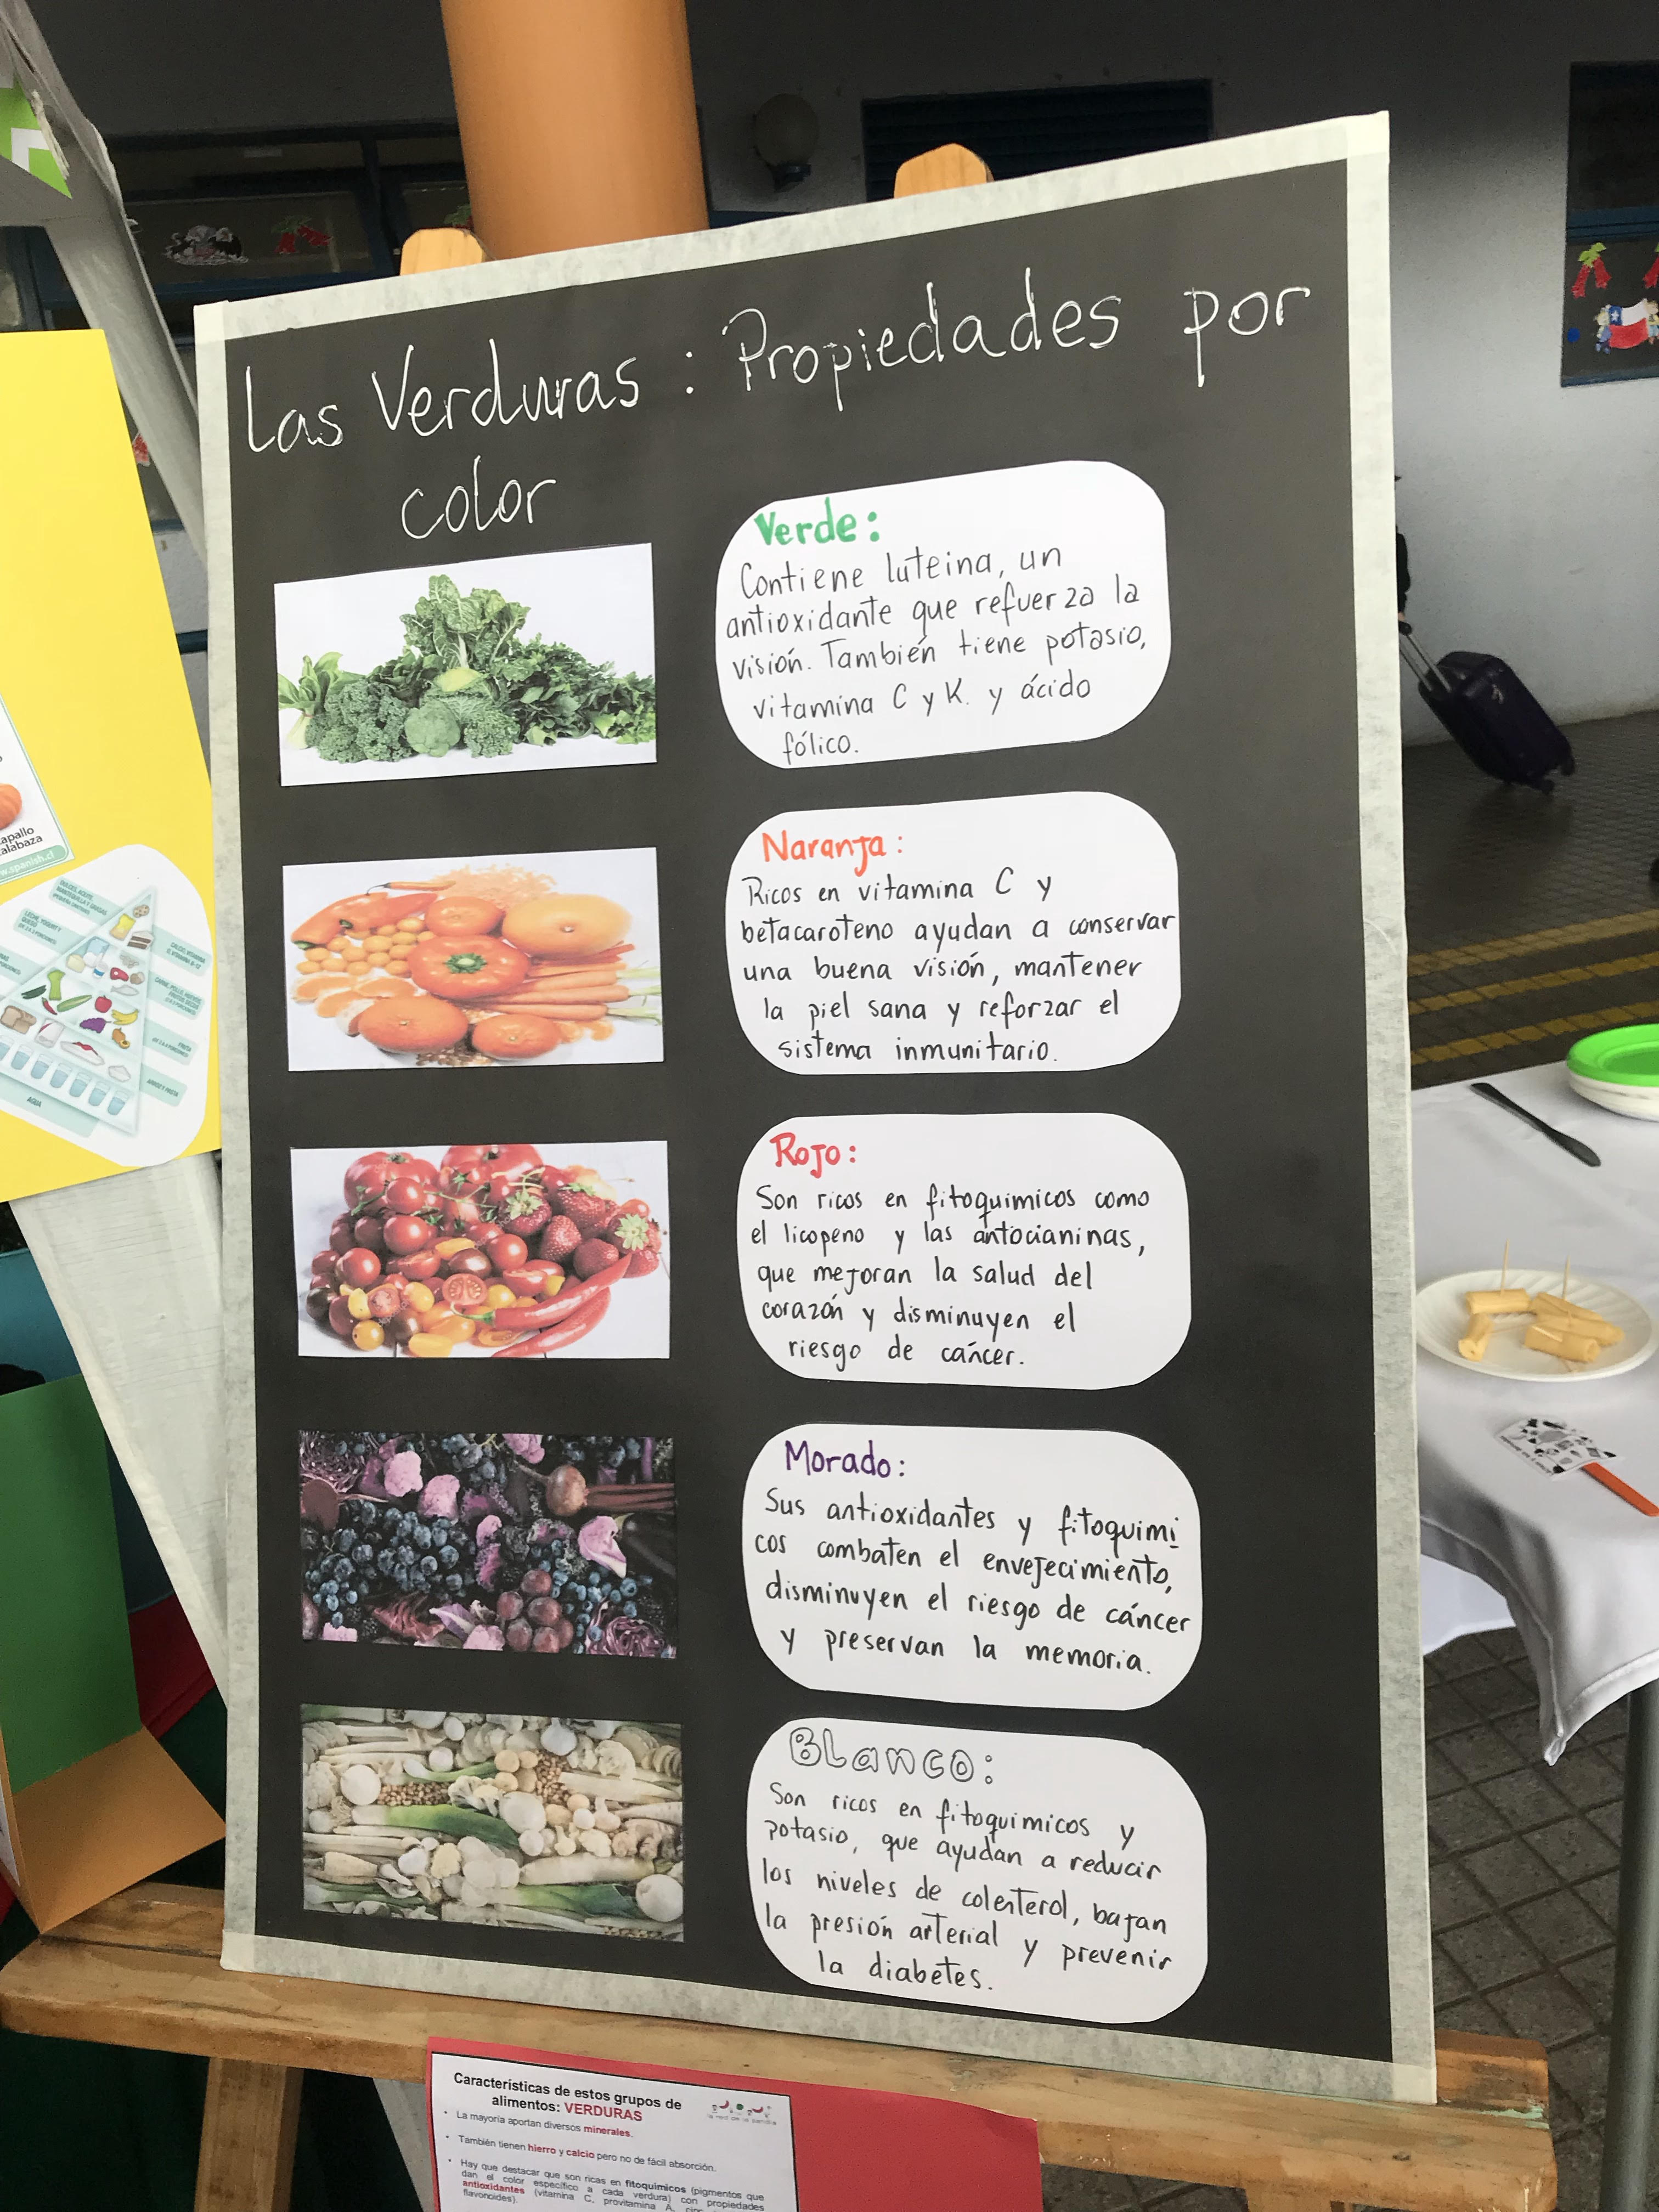 Las Verduras : Propiedades por
color
Verde:
Contiene luteina, un
antioxidante que refuerza la
visión. También tiene potasio,
vitamina C y K. y ácido
fólico.
Naranja:
Ricos en vitamina C y
betacaroteno ayudan a conservar
una buena visión, mantener
la piel sana y reforzar el
sistema inmunitario.
Rojo:
Son ricos en fitoquimicos como
el licopeno y las antocianinas,
que mejoran la salud del
corazón y disminuyen el
riesgo de cáncer.
Morado:
Sus antioxidantes y fitoquimi
cos combaten el envejecimiento,
disminuyen el riesgo de cáncer
y preservan la memoria.
BLanco:
Son ricos en fitoquimicos y
potasio, que ayudan a reducir
los niveles de colesterol, bajan
la presión arterial y prevenir
la diabetes.
Características de estos grupos de
alimentos: VERDURAS
• La mayoría aportan diversos minerales.
• También tienen hierro y calcio pero no de fácil absorción.
• Hay que destacar que son ricas en fitoquímicos (pigmentos que
dan el color específico a cada verdura) con propiedades
antioxidantes (vitamina C, provitamina A,
flavonoides).
apallo
alabaza
w.spanish.cl
AGUA